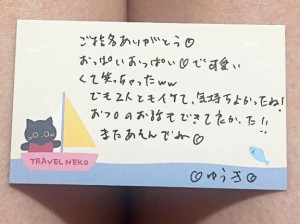 ご指名ありがとう♡
おっぱいおっぱい♡で可愛い
くて笑っちゃったww
でも2人ともイケて、気持ちよかったね!
おフロのお話もできて良かった!!
またあそんでね♡
TRAVEL NEKO
♡ゆうき♡